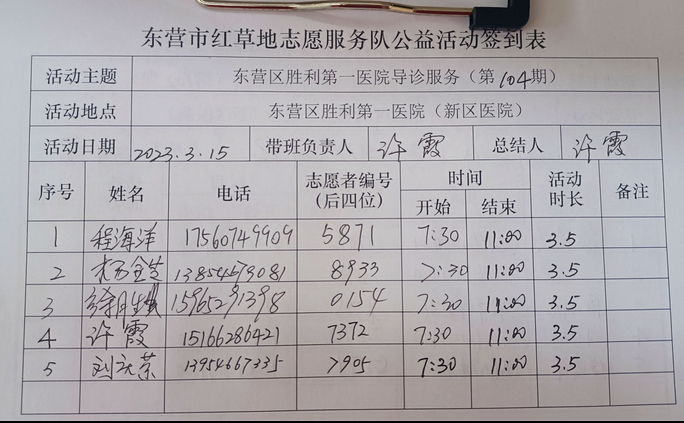 东营市红草地志愿服务队公益活动签到表
活动主题 东营区胜利第一医院导诊服务（第104期）
活动地点 东营区胜利第一医院（新区医院）
活动日期 2023.3.15 带班负责人 许霞 总结人 许霞
序号 姓名 电话 志愿者编号（后四位） 时间 开始 结束 活动时长 备注
1 程海洋 17560749909 5871 7:30 11:00 3.5
2 13854579081 8933 7:30 11:00 3.5
3 15965291398 0154 7:30 11:00 3.5
4 许霞 15166286421 7372 7:30 11:00 3.5
5 13954667335 7905 7:30 11:00 3.5